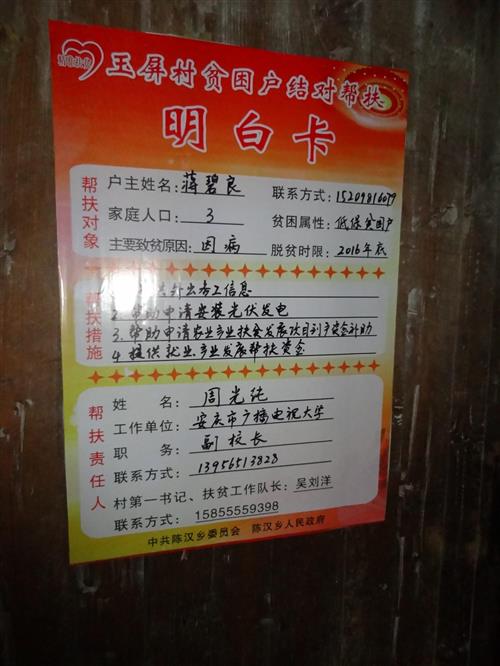 精准扶贫
玉屏村贫困户结对帮扶
明白卡
帮扶对象
户主姓名：蒋碧良 联系方式：15209816079
家庭人口：3 贫困属性：低保贫困户
主要致贫原因：因病 脱贫时限：2016年底
帮扶措施
外出务工信息
2. 帮助申请安装光伏发电
3. 帮助申请农业产业扶贫发展项目到户资金补助
4. 提供就业、产业发展帮扶资金
帮扶责任人
姓名：周光纯
工作单位：安庆市广播电视大学
职务：副校长
联系方式：13956513828
村第一书记、扶贫工作队长：吴刘洋
联系方式：15855559398
中共陈汉乡委员会 陈汉乡人民政府